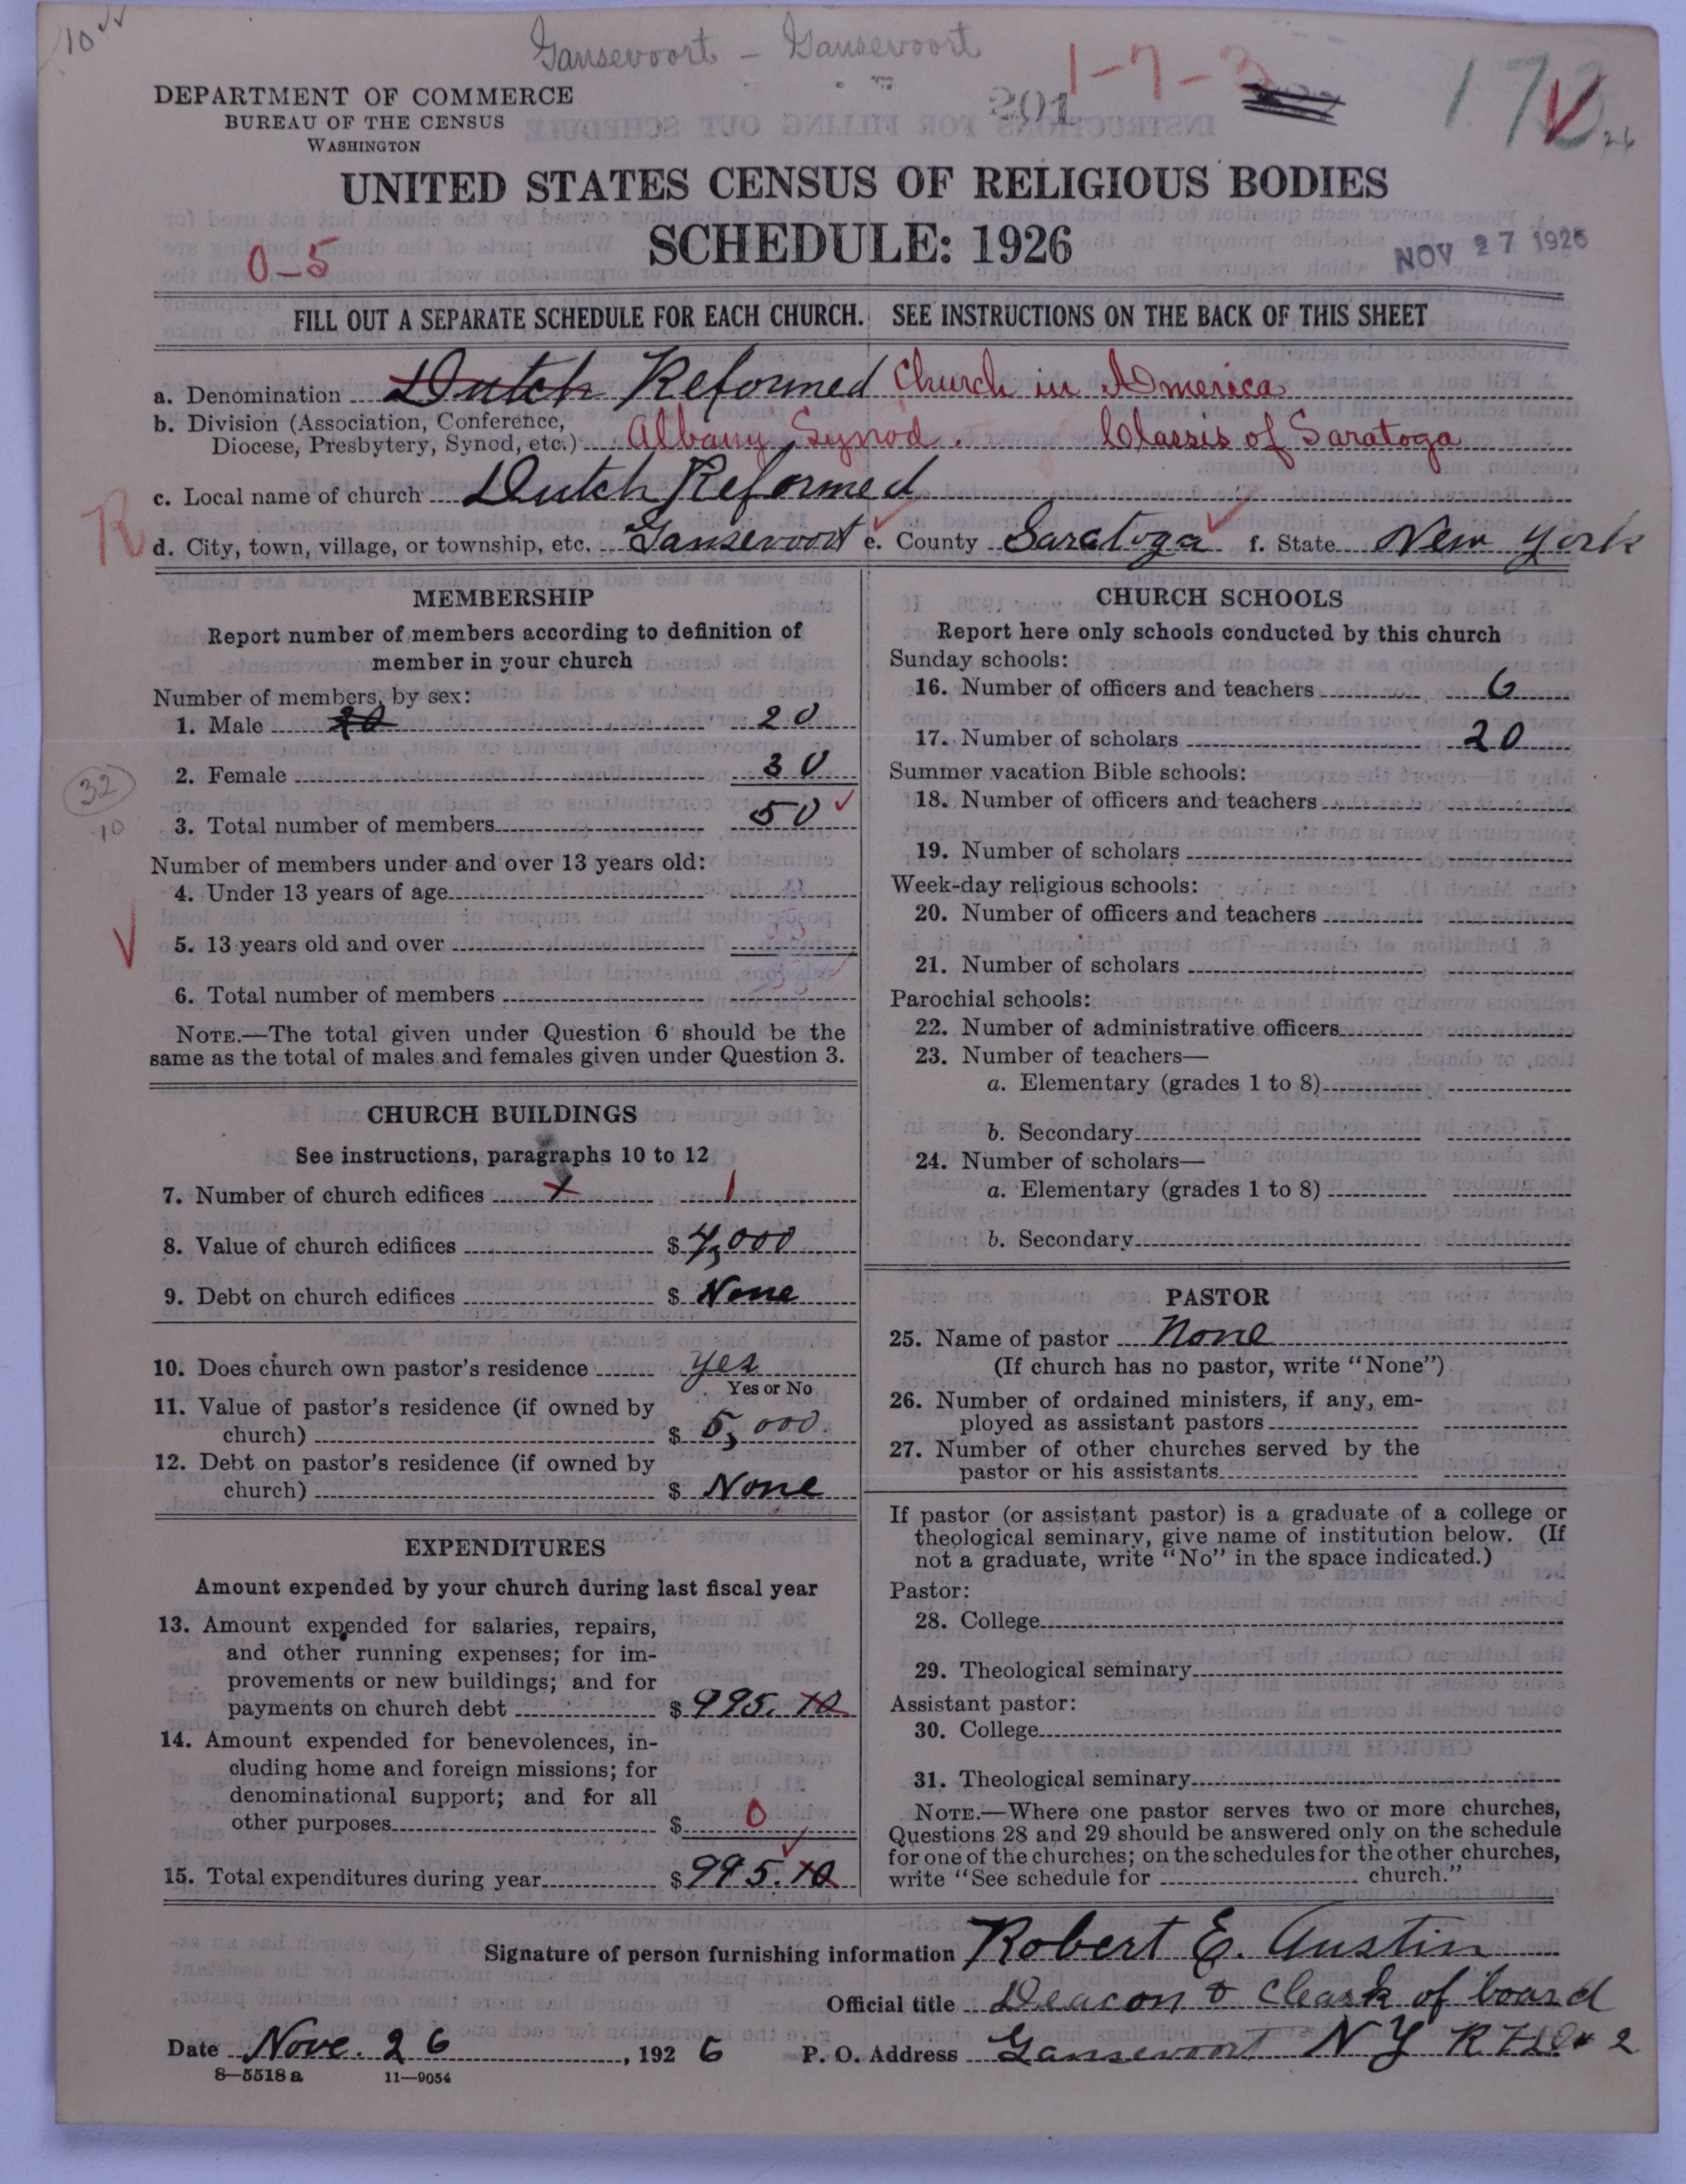 Gansevoort - Gansevoort
1-7-3
201
DEPARTMENT OF COMMERCE
BUREAU OF THE CENSUS
WASHINGTON
UNITED STATES CENSUS OF RELIGIOUS BODIES
SCHEDULE: 1926
0-5
NOV 27 1926
FILL OUT A SEPARATE SCHEDULE FOR EACH CHURCH. SEE INSTRUCTIONS ON THE BACK OF THIS SHEET
a. Denomination Dutch Reformed Church in America
b. Division (Association, Conference,
Diocese, Presbytery, Synod, etc.) Albany Synod. Classis of Saratoga
c. Local name of church Dutch Reformed
R
d. City, town, village, or township, etc. Gansevoort e. County Saratoga f. State New York
MEMBERSHIP
Report number of members according to definition of
member in your church
Number of members, by sex:
1. Male 20 20
2. Female 30
32
10
3. Total number of members 50
Number of members under and over 13 years old:
4. Under 13 years of age
5. 13 years old and over
6. Total number of members
NOTE.—The total given under Question 6 should be the
same as the total of males and females given under Question 3.
CHURCH BUILDINGS
See instructions, paragraphs 10 to 12
7. Number of church edifices 1
8. Value of church edifices $ 4,000
9. Debt on church edifices $ None
10. Does church own pastor's residence yes
Yes or No
11. Value of pastor's residence (if owned by
church) $ 5,000.
12. Debt on pastor's residence (if owned by
church) $ None
EXPENDITURES
Amount expended by your church during last fiscal year
13. Amount expended for salaries, repairs,
and other running expenses; for im-
provements or new buildings; and for
payments on church debt $ 995.10
14. Amount expended for benevolences, in-
cluding home and foreign missions; for
denominational support; and for all
other purposes $ 0
15. Total expenditures during year $ 995.10
CHURCH SCHOOLS
Report here only schools conducted by this church
Sunday schools:
16. Number of officers and teachers 6
17. Number of scholars 20
Summer vacation Bible schools:
18. Number of officers and teachers
19. Number of scholars
Week-day religious schools:
20. Number of officers and teachers
21. Number of scholars
Parochial schools:
22. Number of administrative officers
23. Number of teachers—
a. Elementary (grades 1 to 8)
b. Secondary
24. Number of scholars—
a. Elementary (grades 1 to 8)
b. Secondary
PASTOR
25. Name of pastor None
(If church has no pastor, write "None")
26. Number of ordained ministers, if any, em-
ployed as assistant pastors
27. Number of other churches served by the
pastor or his assistants
If pastor (or assistant pastor) is a graduate of a college or
theological seminary, give name of institution below. (If
not a graduate, write "No" in the space indicated.)
Pastor:
28. College
29. Theological seminary
Assistant pastor:
30. College
31. Theological seminary
NOTE.—Where one pastor serves two or more churches,
Questions 28 and 29 should be answered only on the schedule
for one of the churches; on the schedules for the other churches,
write "See schedule for church."
Signature of person furnishing information Robert E. Austin
Official title Deacon & Cleark of board
Date Nove. 26, 1926 P. O. Address Gansevoort N Y R F D # 2
8—5518 a 11—9054